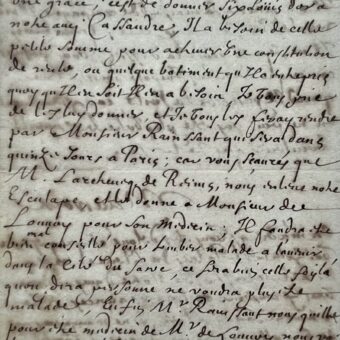 une grace, c'est de donner six Louis d'or a
nostre amy Cassandre; Il a bisoin de cette
petite somme pour achever une constitution
de rente, ou quelque bâtiment qu'Il a entrepris
quoy qu'Il en soit Il en a bisoin Je vous prie
de les luy donner, et Je vous les feray rendre
par Monsieur Rainssant qui sera dans
quinze Jours à Paris; car vous sçaurez que
Mr. L'archeuesq de Reims, nous enleue nostre
Esculape, et le donne a Monsieur de
Louuoy pour son Medecin; Il faudra etre
bien conseillé pour tomber malade a l'auenir
dans la cité du Sacre, ce sera bien celle la
quon dira personne ne voudra plus etre
malade, Mr. Rainssant nous quitte
pour etre medecin de Mr. de Louuoy